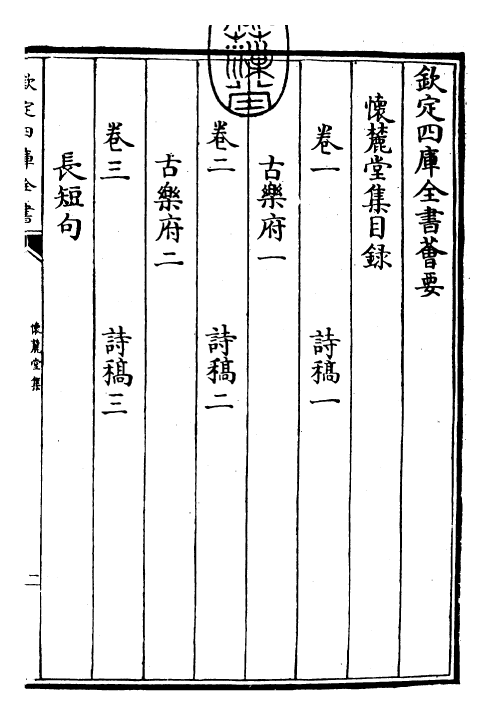 欽定四庫全書薈要
懷麓堂集目録
卷一 詩稿一
古樂府一
卷二 詩稿二
古樂府二
卷三 詩稿三
長短句
欽定四庫全書
懷麓堂集
二